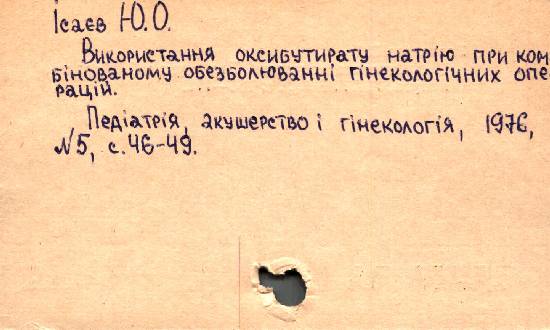 Ісаєв Ю.О.
Використання оксибутирату натрію при ком
бінованому обезболюванні гінекологічних опе
рацій.
Педіатрія, акушерство і гінекологія, 1976,
№5, с.46-49.